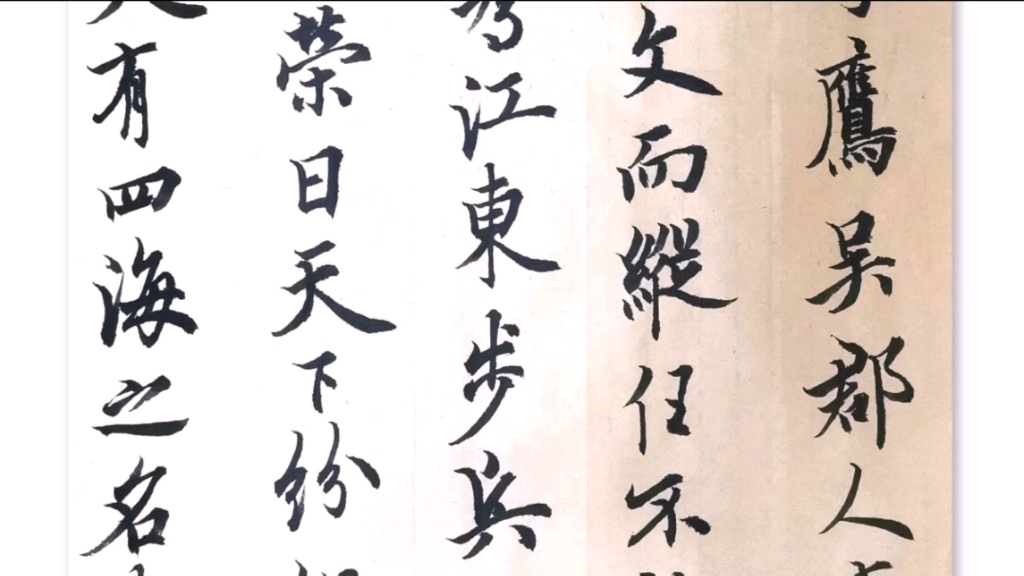 鷹吳郡人
文而縱任不
江東步兵
榮曰天下紛
有四海之名